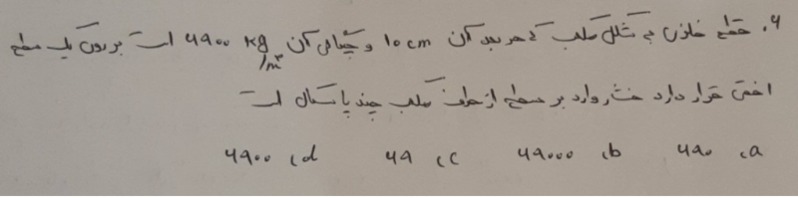 ۶. قطعه فلزی به شکل مکعب که هر بعد آن ۱۰ cm و چگالی آن ۶۹۰۰ kg/m³ است بر روی یک سطح
افقی قرار دارد فشار وارد بر سطح از طرف مکعب چند پاسکال است
a) ۶۹۰ b) ۶۹۰۰۰ c) ۶۹ d) ۶۹۰۰